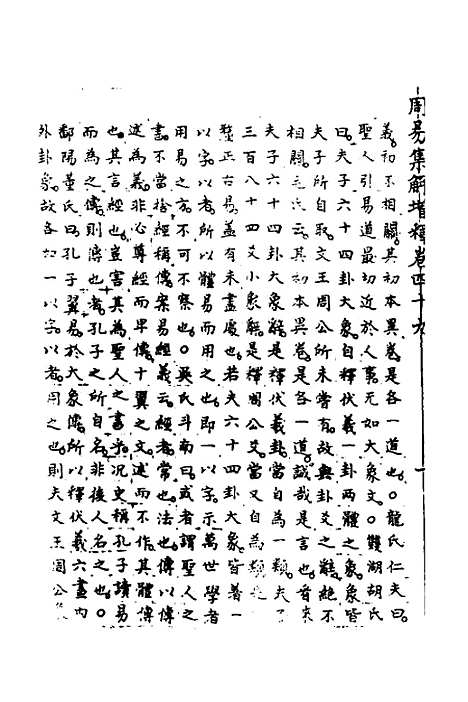 周易集解增釋卷四十九
義初不相關其初本異卷是各一道也○龍氏仁夫曰
聖人引易道最切近於人事無如大象文○雙湖胡氏
曰夫子六十四卦大象自釋伏羲一卦兩體之象象皆
夫子所自取文王周公所未嘗有故與卦爻之辭絶不
相關毛氏云其初本異卷是各一道誠哉是言也昔朱
夫子六十四卦大象辭是釋伏羲卦當自為一類夫子
三百八十四爻小象辭是釋周公爻當又自為類
釐正古易蓋有未盡處也若夫六十四卦大象皆著一
以字以者所以體易而用之也即一以字示萬世學者
用易之方不可不察也○吳氏斗南曰或者謂聖人之
書不當捨經稱傳案易經義云經者常也法也傳以傳
述為義非心尊經而卑傳十翼之文述而不作其體傳
也其言經也豈害其為聖人之書乎况史稱孔子讀易
而為之傳則傳也者孔子之所自名非後人名之也○
鄱陽董氏曰孔子翼易於大象傳所以釋伏羲六畫内
外卦象故各加一以字以者用之也則夫文王周公